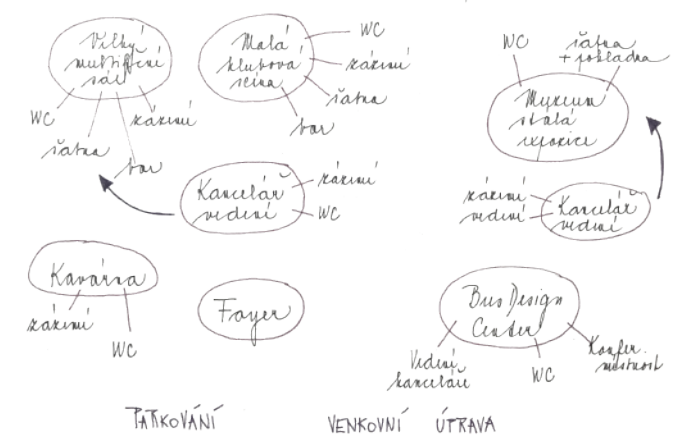 Velký
multifční
sál
WC
šatna
bar
zázemí
Malá
klubová
scéna
WC
zázemí
šatna
bar
WC
šatna
+ pokladna
Muzeum
stálá
expozice
Kancelář
vedení
zázemí
WC
zázemí
vedení
Kancelář
vedení
Kavárna
zázemí
WC
Foyer
Bus Design
Center
Vedení
kanceláře
WC
Konfer.
místnost
PARKOVÁNÍ
VENKOVNÍ ÚPRAVA